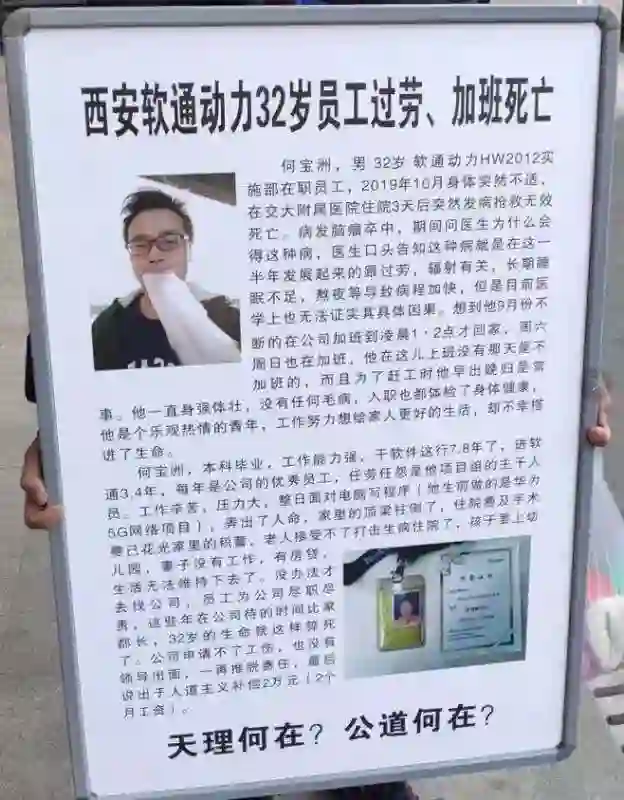 西安软通动力32岁员工过劳、加班死亡
何宝洲，男 32岁 软通动力HW2012实
施部在职员工，2019年10月身体突然不适，
在交大附属医院住院3天后突然发病抢救无效
死亡。病发脑瘤卒中，期间问医生为什么会
得这种病，医生口头告知这种病就是在这一
半年发展起来的跟过劳，辐射有关，长期睡
眠不足，熬夜等导致病程加快，但是目前医
学上也无法证实其具体因果。想到他9月份不
断的在公司加班到凌晨1·2点才回家，周六
周日也在加班，他在这儿上班没有那天能不
加班的，而且为了赶工时他早出晚归是常
事。他一直身强体壮，没有任何毛病，入职也都体检了身体健康，
他是个乐观热情的青年，工作努力想给家人更好的生活，却不幸搭
进了生命。
何宝洲，本科毕业，工作能力强，干软件这行7.8年了，进软
通3.4年，每年是公司的优秀员工，任劳任怨是他项目组的主干人
员。工作辛苦，压力大，整日面对电脑写程序（他生前做的是华为
5G网络项目），弄出了人命，家里的顶梁柱倒了，住院费及手术
费已花光家里的积蓄，老人接受不了打击生病住院了，孩子要上幼
儿园，妻子没有工作，有房贷，
生活无法维持下去了。没办法才
去找公司，员工为公司尽职尽
责，这些年在公司待的时间比家
都长，32岁的生命就这样猝死
了。公司申请不了工伤，也没有
领导出面，一再推脱责任，最后
说出于人道主义补偿2万元（2个
月工资）。
天理何在？公道何在？